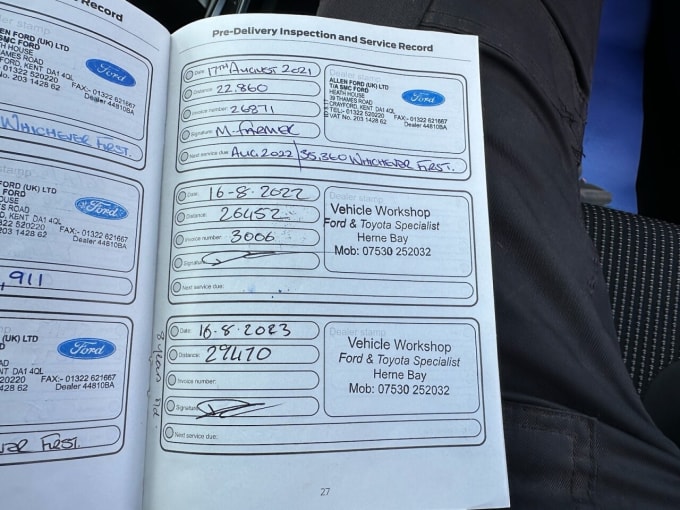 e Records
Dealer stamp
ALLEN FORD (UK) LTD
SMC FORD
HEATH HOUSE
THAMES ROAD
FORD, KENT DA1 4QL
01322 520220
No. 203 1428 62
FAX:- 01322 621667
Dealer 44810BA
Ford
WHICHEVER FIRST.
FORD (UK) LTD
KENT DA1 4QL
22 520220
203 1428 62
FAX:- 01322 621667
Dealer 44810BA
Ford
,911
(UK) LTD
DA1 4QL
FAX:- 01322 621667
Dealer 44810BA
Ford
VER FIRST.
Pre-Delivery Inspection and Service Record
Date: 17TH AUGUST 2021
Distance: 22.860
Invoice number: 26871
Signature:
Next service due: AUG.2022/35,360 WHICHEVER FIRST.
Dealer stamp
ALLEN FORD (UK) LTD
T/A SMC FORD
HEATH HOUSE
39 THAMES ROAD
CRAYFORD, KENT DA1 4QL
TEL:- 01322 520220
VAT No. 203 1428 62
FAX:- 01322 621667
Dealer 44810BA
Ford
Date: 16-8-2022
Distance: 26452
Invoice number: 3006
Signature:
Next service due:
Dealer stamp
Vehicle Workshop
Ford & Toyota Specialist
Herne Bay
Mob: 07530 252032
Date: 16.8.2023
Distance: 29470
Invoice number:
Signature:
Next service due:
Dealer stamp
Vehicle Workshop
Ford & Toyota Specialist
Herne Bay
Mob: 07530 252032
27